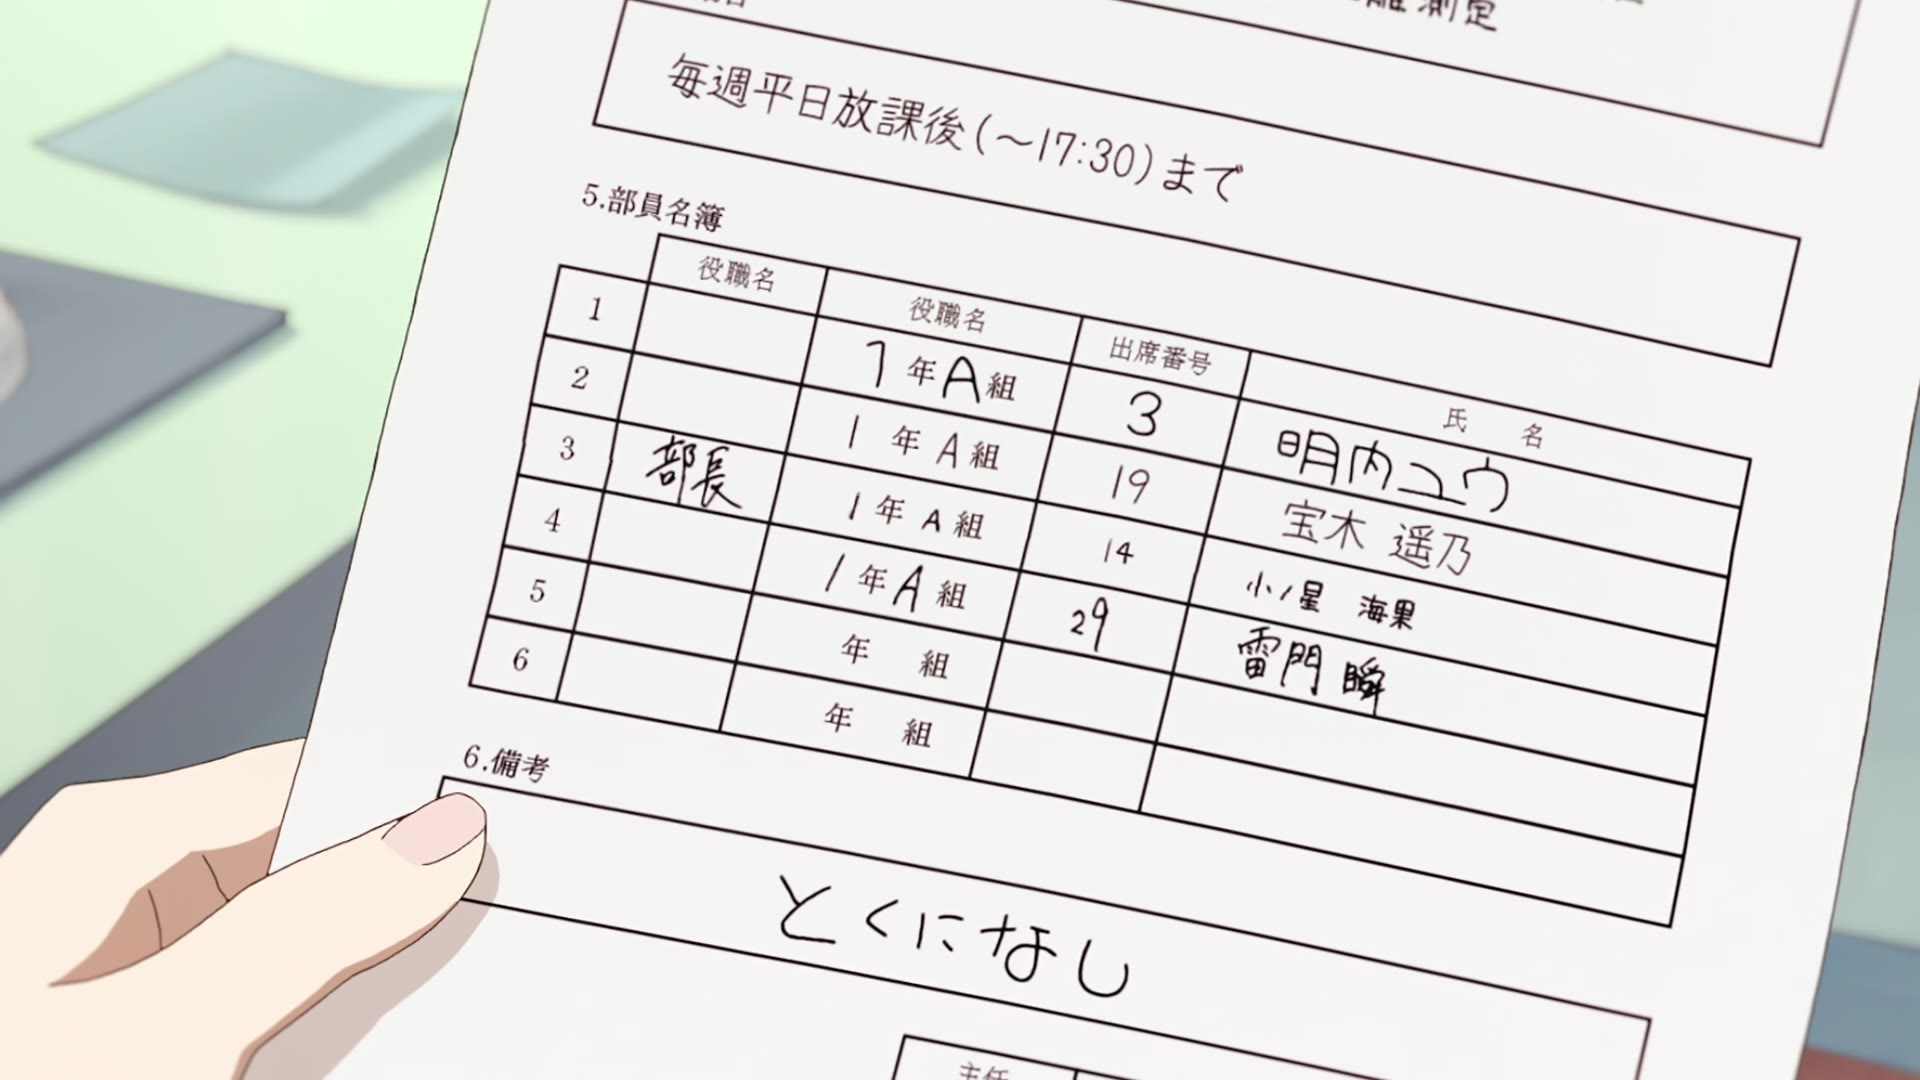 測定
毎週平日放課後(～17:30)まで
5.部員名簿
役職名 役職名 出席番号 氏 名
1 1年A組 3 明内ユウ
2 1年A組 19 宝木 遥乃
3 部長 1年A組 14 小ノ星 海果
4 1年A組 29 雷門 瞬
5 年 組
6 年 組
6.備考
とくになし
主任